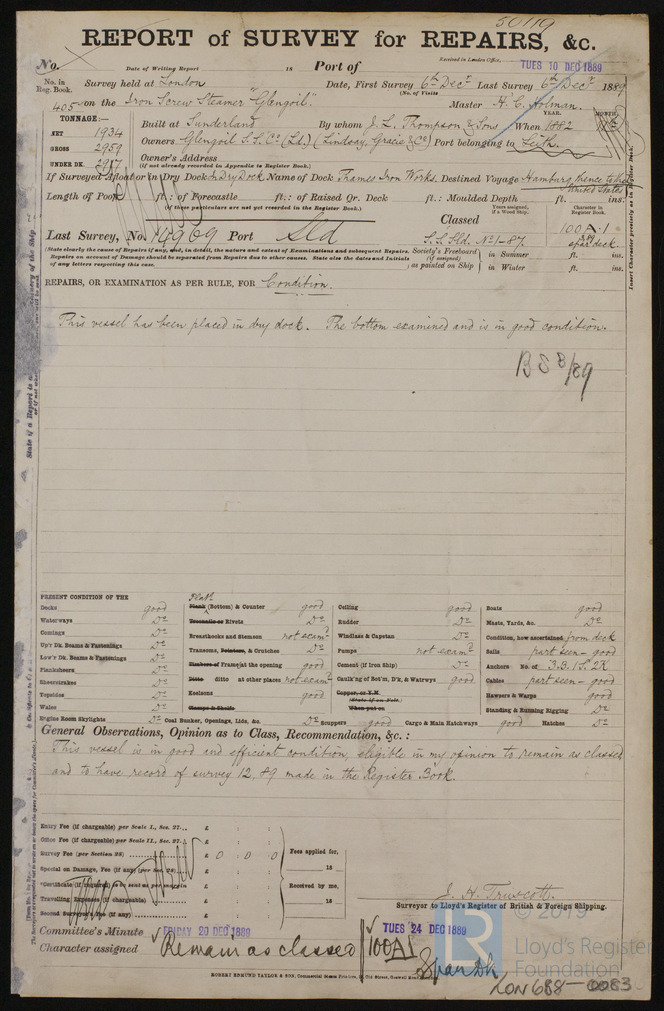 50119
REPORT of SURVEY for REPAIRS, &c.
No. Date of Writing Report 18 Port of Received in London Office, TUES 10 DEC 1889
No. in Reg. Book. Survey held at London Date, First Survey 6th Decr Last Survey 6th Decr 1889
(No. of Visits
405 on the Iron Screw Steamer "Glengoil". Master H. C. Holman.
TONNAGE:— YEAR. MONTH.
NET 1934 Built at Sunderland By whom J. L. Thompson & Sons When 1882
GROSS 2959 Owners Glengoil S.S. Co (Ld.) (Lindsay, Gracie & Co) Port belonging to Leith.
UNDER DK. 2917 Owner's Address
(if not already recorded in Appendix to Register Book.)
If Surveyed Afloat or in Dry Dock In Dry Dock Name of Dock Thames Iron Works. Destined Voyage Hamburg thence to the United States
Length of Poop ft.: of Forecastle ft.: of Raised Qr. Deck ft.: Moulded Depth ft. ins.
(if these particulars are not yet recorded in the Register Book.)
Years assigned, if a Wood Ship. Character in Register Book.
Last Survey, No. 14969 Port Sld Classed S.S. Sld. No 1-87. 100 A.1 3.89 spar deck.
(State clearly the cause of Repairs if any, and, in detail, the nature and extent of Examinations and subsequent Repairs.
Repairs on account of Damage should be separated from Repairs due to other causes. State also the dates and Initials
of any letters respecting this case.
Society's Freeboard (if assigned) as painted on Ship in Summer ft. ins.
in Winter ft. ins.
REPAIRS, OR EXAMINATION AS PER RULE, FOR Condition.
This vessel has been placed in dry dock. The bottom examined and is in good condition.
BS 8/89
PRESENT CONDITION OF THE
Decks good
Waterways Do
Comings Do
Up'r Dk. Beams & Fastenings Do
Low'r Dk. Beams & Fastenings Do
Planksheers Do
Sheerstrakes Do
Topsides Do
Wales Do
Engine Room Skylights Do
Plate
Plank (Bottom) & Counter good
Treenails or Rivets Do
Breasthooks and Stemson not exam?
Transoms, Pointers, & Crutches Do
Timbers of Frames at the opening good
Ditto ditto at other places not exam?
Keelsons good
Clamps & Shelfs
Coal Bunker, Openings, Lids, &c. Do
Ceiling good
Rudder Do
Windlass & Capstan Do
Pumps not exam?
Cement (if Iron Ship) Do
Caulk'ng of Bot'm, D'k, & Watrwys good
Copper, or Y.M.
(State if on Felt.)
When put on
Scuppers good Cargo & Main Hatchways good Hatches Do
Boats good
Masts, Yards, &c. Do
Condition, how ascertained from deck
Sails part seen - good
Anchors No. of 3.B. 1S. 2K
Cables part seen - good
Hawsers & Warps good
Standing & Running Rigging Do
General Observations, Opinion as to Class, Recommendation, &c.:
This vessel is in good and efficient condition, eligible in my opinion to remain as classed
and to have record of survey 12, 89 made in the Register Book.
Entry Fee (if chargeable) per Scale I., Sec. 27... £ : :
Office Fee (if chargeable) per Scale II., Sec. 27... £ : :
Survey Fee (per Section 28) £ 0 : 0 : 0
Special on Damage, Fee (if any) (per Sec. 28) £ : :
*Certificate (if required) to be sent as per margin £ : :
Travelling Expenses (if chargeable) £ : :
Second Surveyor's Fee (if any) £ : :
Fees applied for,
18
Received by me,
18
J. H. Truscott.
Surveyor to Lloyd's Register of British & Foreign Shipping.
Committee's Minute FRIDAY 20 DEC 1889 TUES 24 DEC 1889
Character assigned Remain as classed 100A1
Spar Dk
ROBERT EDMUND TAYLOR & SON,
© 2019
LR
Lloyd's Register
Foundation
LON 688 - 0083